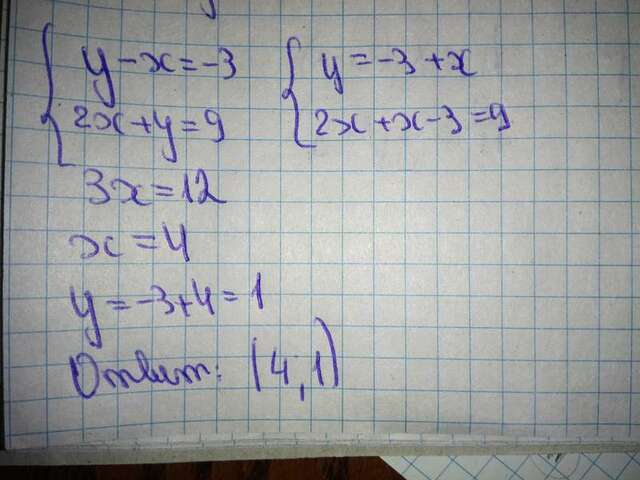 y - x = -3 y = -3 + x
2x + y = 9 2x + x - 3 = 9
3x = 12
x = 4
y = -3 + 4 = 1
Ответ: (4,1)